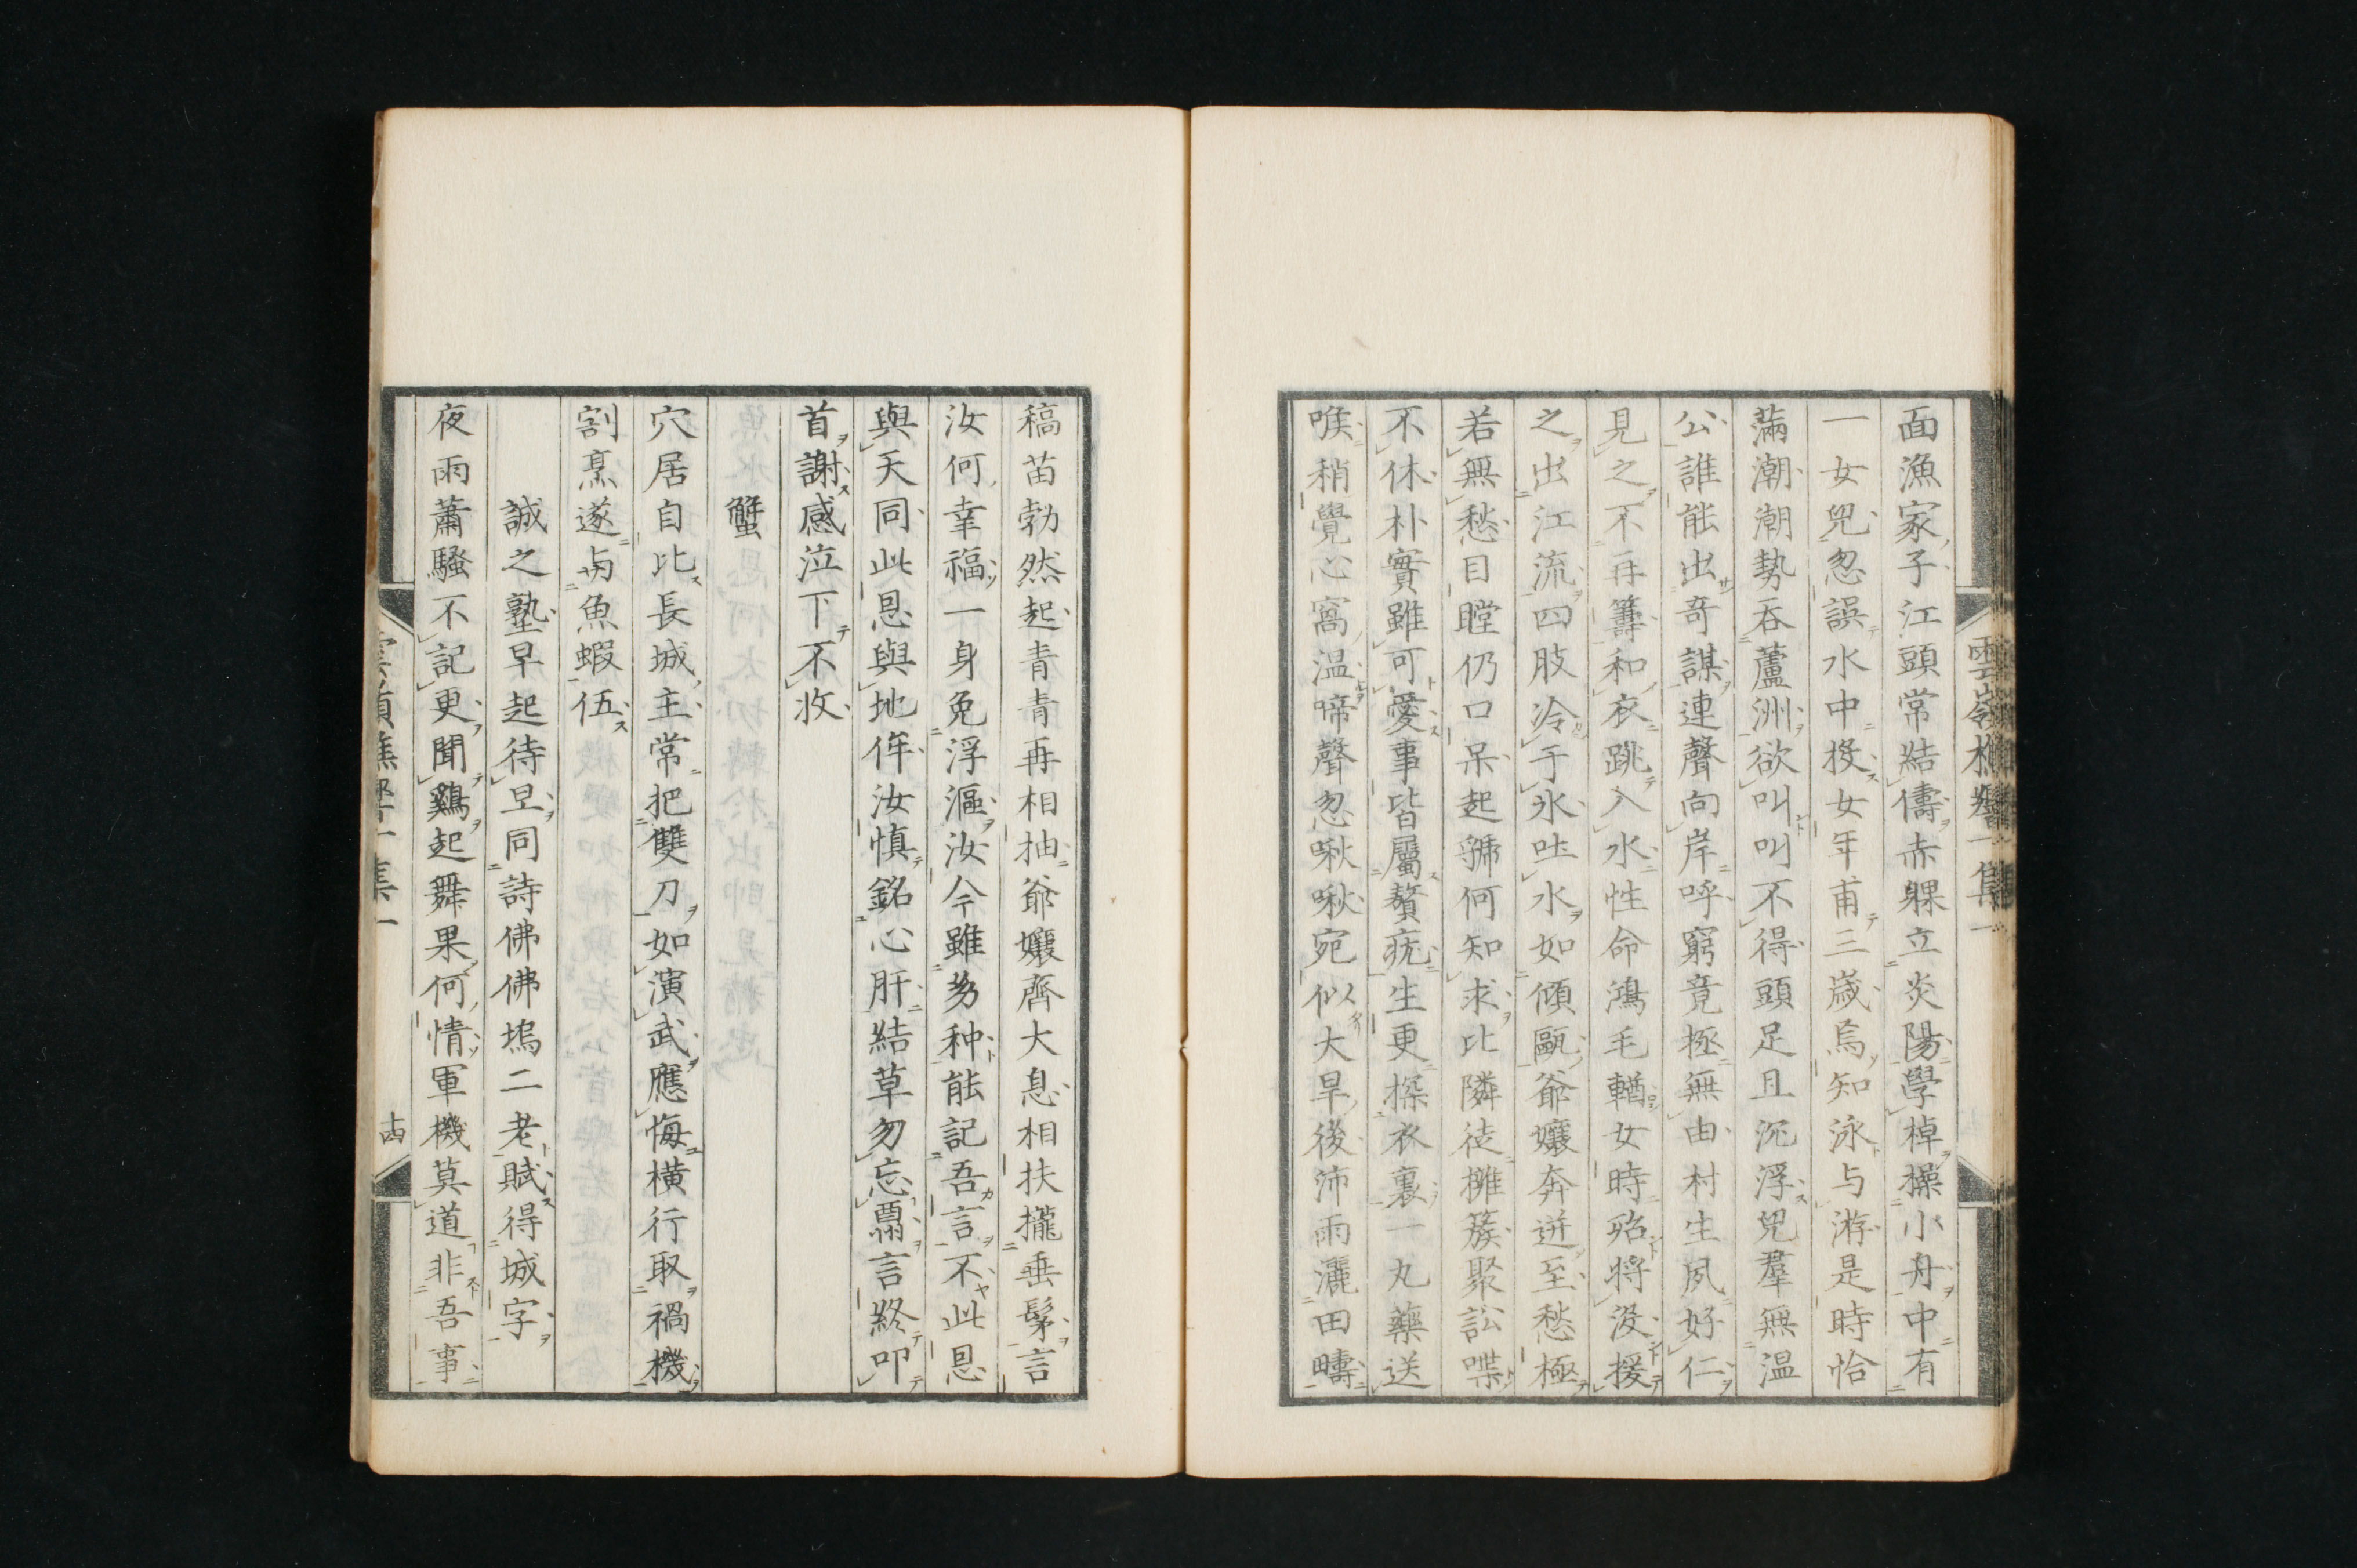 面漁家子江頭常結儔赤躶立炎陽學棹操小舟中有
一女兒忽誤水中投女年甫三歲烏知泳与游是時恰
滿潮潮勢吞蘆洲欲叫叫不得頭足且沉浮兒羣無温
公誰能出奇謀連聲向岸呼窮竟極無由村生夙好仁
見之不再籌和衣跳入水性命鴻毛輶女時殆將沒援
之出江流四肢冷于氷吐水如傾甌爺孃奔迸至愁極
若無愁目瞠仍口呆起號何知求比隣徒擁簇聚訟喋
不休朴實雖可愛事皆屬贅疣生更探衣裏一丸藥送
喉稍覺心窩温啼聲忽啾啾宛似大旱後沛雨灑田疇
雲嶺樵響一集一
稿苗勃然起青青再相抽爺孃齊大息相扶攏垂髮言
汝何幸福一身免浮漚汝今雖芴种能記吾言不此恩
與天同此恩與地侔汝慎銘心肝結草勿忘酬言終叩
首謝感泣下不收
蟹
穴居自比長城主常把雙刀如演武應悔橫行取禍機
割烹遂与魚蝦伍
誠之塾早起待旦同詩佛佛塢二老賦得城字
夜雨蕭騷不記更聞鷄起舞果何情軍機莫道非吾事
雲嶺樵響一集一
十四